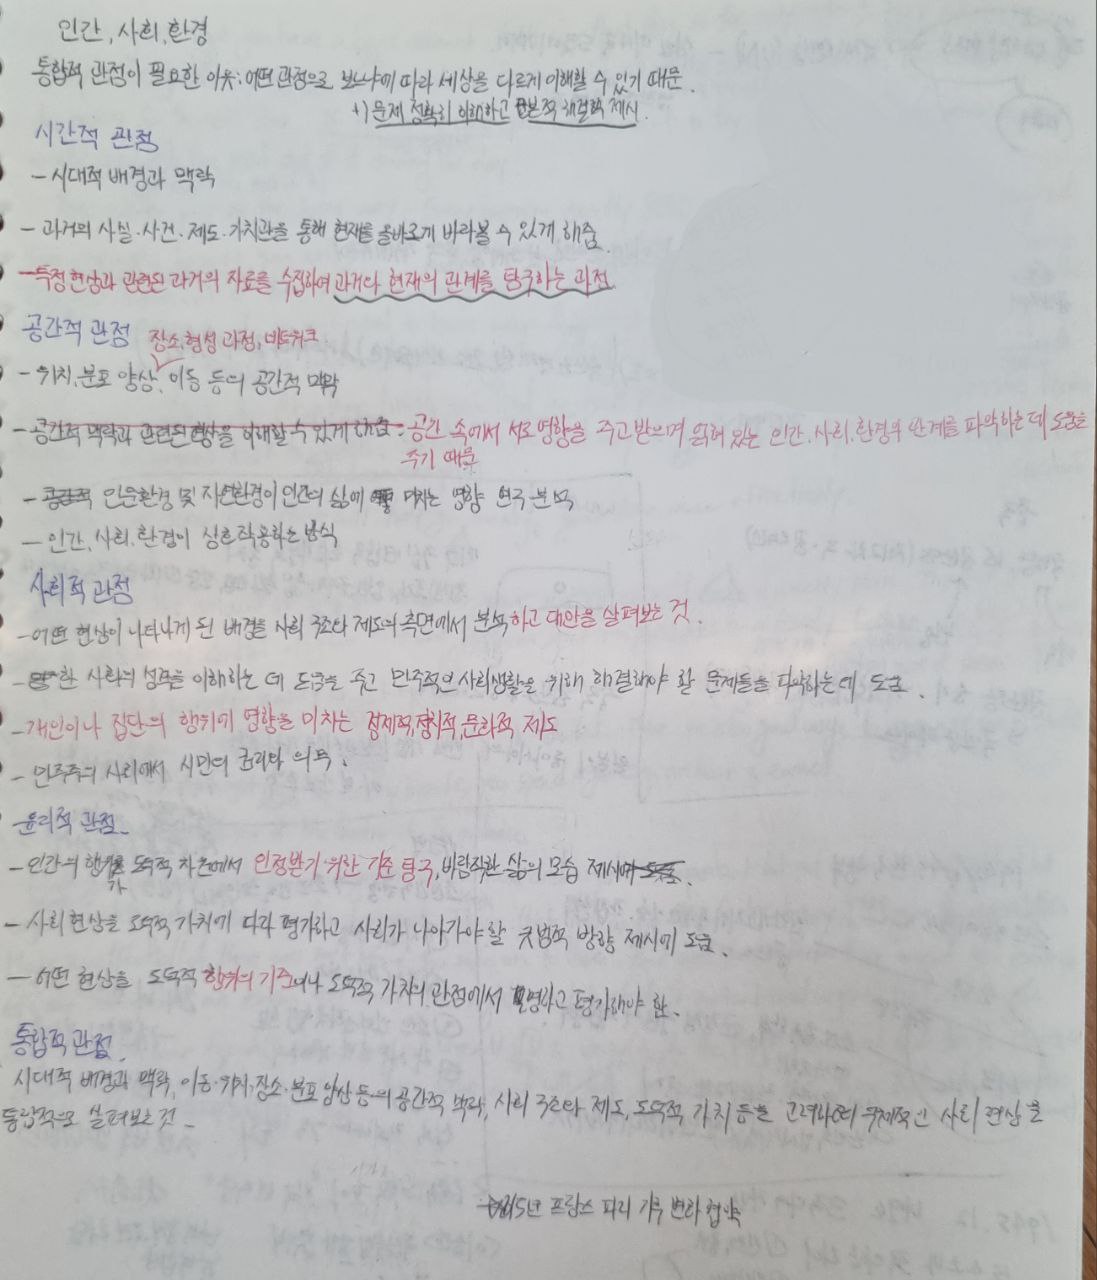 인간, 사회, 환경
통합적 관점이 필요한 이유: 어떤 관점으로 보느냐에 따라 세상을 다르게 이해할 수 있기 때문.
+) 문제 정확히 이해하고 근본적 해결책 제시.
시간적 관점
- 시대적 배경과 맥락
- 과거의 사실·사건·제도·가치관을 통해 현재를 올바르게 바라볼 수 있게 해줌.
- 특정 현상과 관련된 과거의 자료를 수집하여 과거와 현재의 관계를 탐구하는 과정
공간적 관점 장소, 형성 과정, 네트워크
- 위치, 분포 양상, 이동 등의 공간적 맥락
- 공간적 맥락과 관련된 현상을 이해할 수 있게 해줌: 공간 속에서 서로 영향을 주고 받으며 얽혀 있는 인간, 사회, 환경의 관계를 파악하는 데 도움을
주기 때문
- 공간적 인문환경 및 자연환경이 인간의 삶에 미치는 영향 연구 분석
- 인간, 사회, 환경이 상호작용하는 방식
사회적 관점
- 어떤 현상이 나타나게 된 배경을 사회 구조와 제도의 측면에서 분석하고 대안을 살펴보는 것.
- 사회의 성격을 이해하는 데 도움을 주고 민주적인 사회생활을 위해 해결해야 할 문제들을 파악하는데 도움.
- 개인이나 집단의 행위에 영향을 미치는 경제적, 정치적, 문화적 제도
- 민주주의 사회에서 시민의 권리와 의무.
윤리적 관점.
- 인간의 행위가 도덕적 차원에서 인정받기 위한 기준 탐구, 바람직한 삶의 모습 제시
- 사회현상을 도덕적 가치에 따라 평가하고 사회가 나아가야 할 규범적 방향 제시에 도움.
- 어떤 현상을 도덕적 행위의 기준이나 도덕적 가치의 관점에서 설명하고 평가해야 함.
통합적 관점.
시대적 배경과 맥락, 이동·위치·장소·분포 양상 등의 공간적 맥락, 사회 구조와 제도, 도덕적 가치 등을 고려하여 사회 현상을
통합적으로 살펴보는 것.
2015년 프랑스 파리 기후 변화 협약